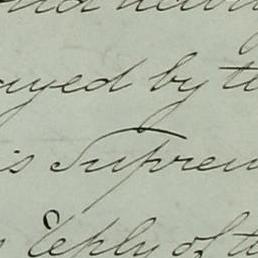 ayed by th
is Suprem
Reply of t